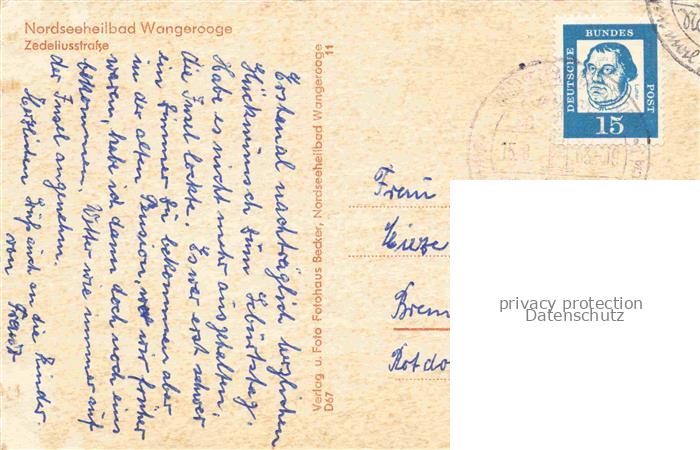 Nordseeheilbad Wangerooge
Zedeliusstraße
Erstmal nachträglich herzlichen
Glückwunsch zum Geburtstag.
Habe es nicht mehr ausgehalten,
die Insel lockte. Es war erst schwer
ein Zimmer zu bekommen aber
in der alten Pension, wo wir früher
waren, habe ich dann doch noch eins
bekommen. Wetter wie immer auf
der Insel angenehm.
Herzlichen Gruß auch an die Kinder.
von Franz
Verlag u. Foto Fotohaus Becker, Nordseeheilbad Wangerooge
D67
11
DEUTSCHE
BUNDES
POST
15
Frau
Brem
Rotdo
privacy protection
Datenschutz